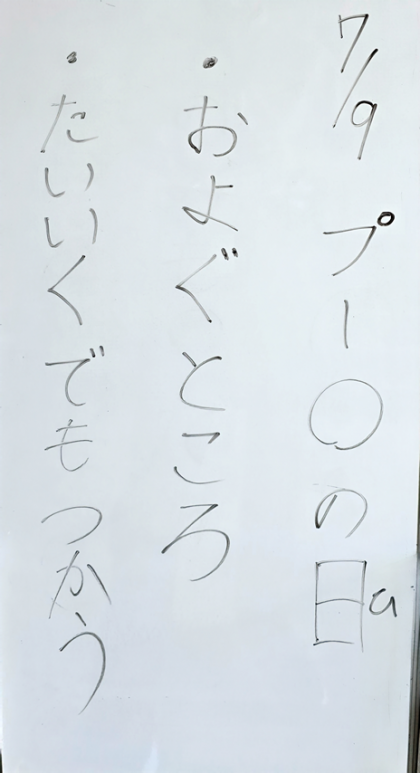 7/9 プー〇の日
・およぐところ
・たいいくでもつかう